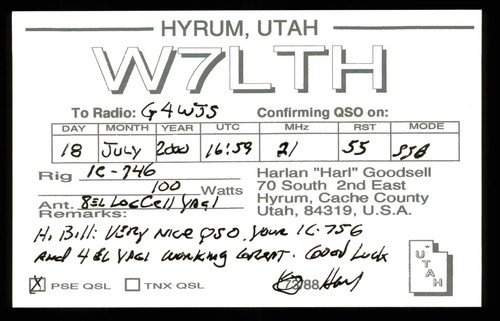 HYRUM, UTAH
W7LTH
To Radio: G4WJS Confirming QSO on:
DAY MONTH YEAR UTC MHz RST MODE
18 July 2000 16:59 21 55 SSB
Rig IC-746
100 Watts
Ant. 8EL LogCell YAGI
Harlan "Harl" Goodsell
70 South 2nd East
Hyrum, Cache County
Utah, 84319, U.S.A.
Remarks:
Hi Bill: VERY NICE QSO. Your IC-756
and 4 EL YAGI working GREAT. Good Luck
73/88 Harl
X PSE QSL TNX QSL
UTAH